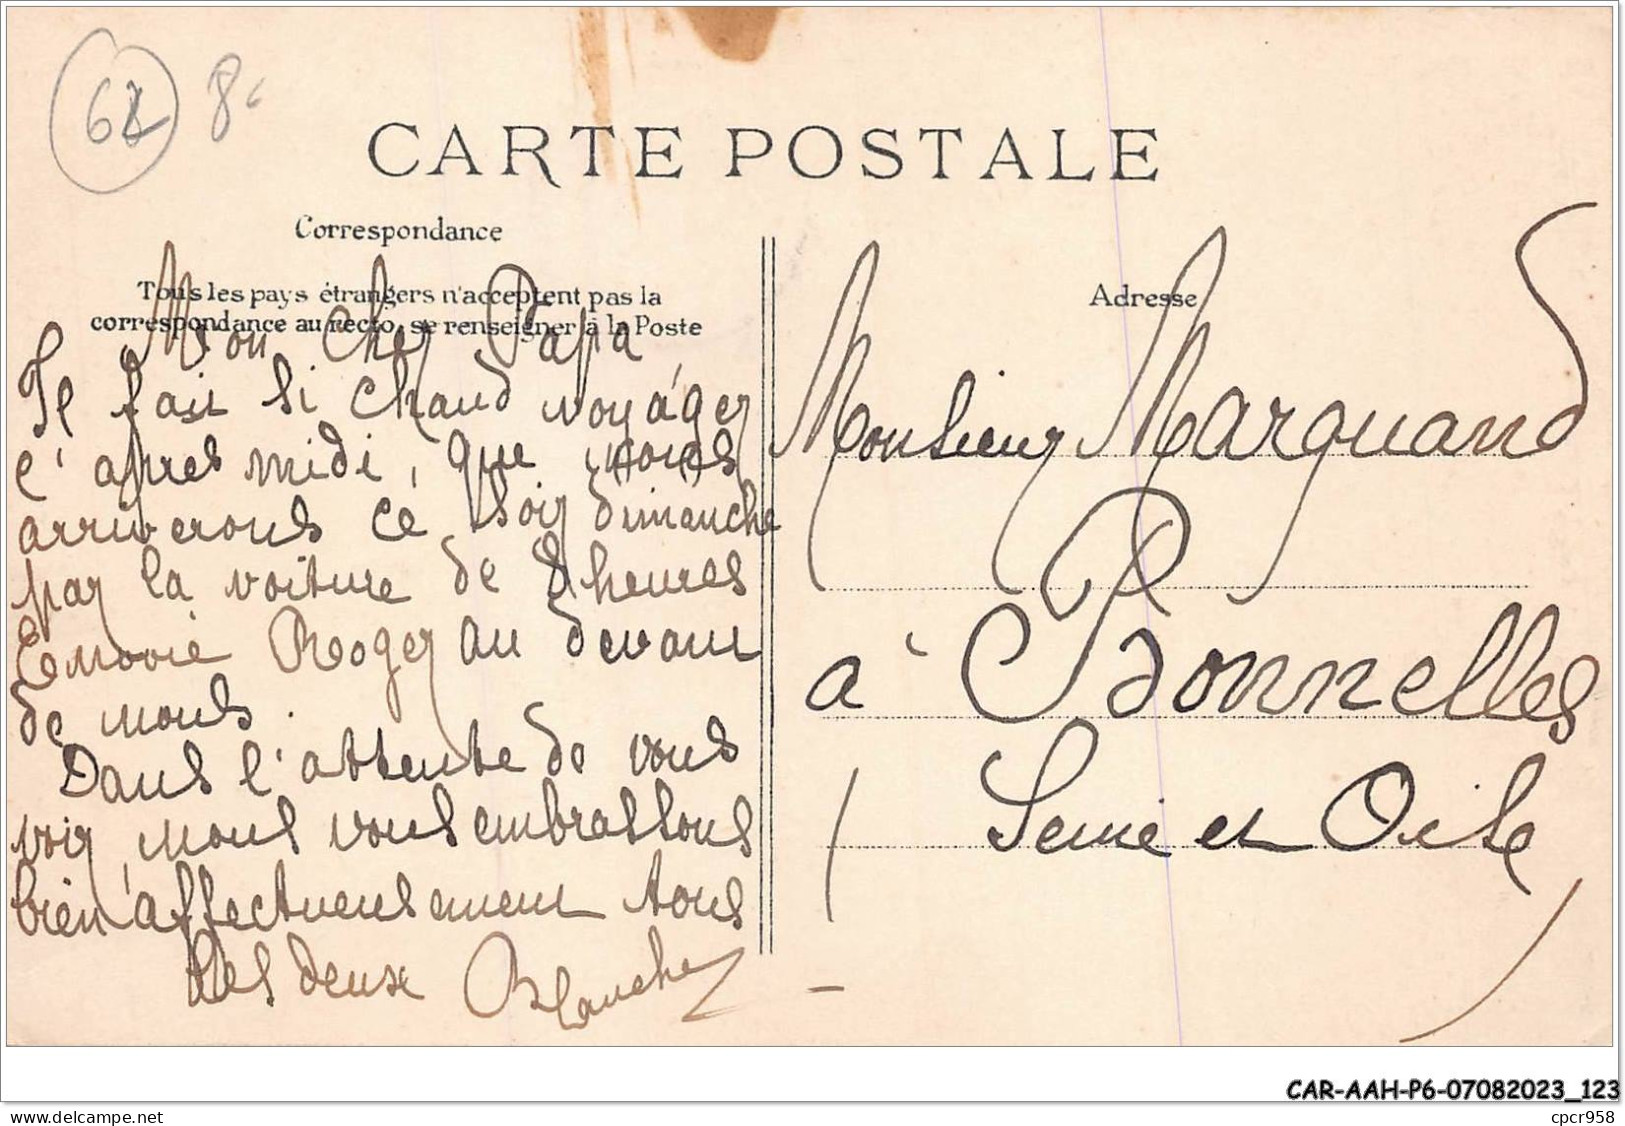 8
CARTE POSTALE
Correspondance
Tous les pays étrangers n'acceptent pas la
correspondance au recto, se renseigner à la Poste
Mon Cher Papa
Il fait si chaud voyager
l'après midi, que nous
arriverons ce soir dimanche
par la voiture de 8 heures
Envoie Roger au devant
de nous.
Dans l'attente de vous
voir, nous vous embrassons
bien affectueusement tous
les deux Blanche
Adresse
Monsieur Marquand
à Bonnelles
Seine et Oise
CAR-AAH-P6-07082023_123
© delcampe.net
cpcr958